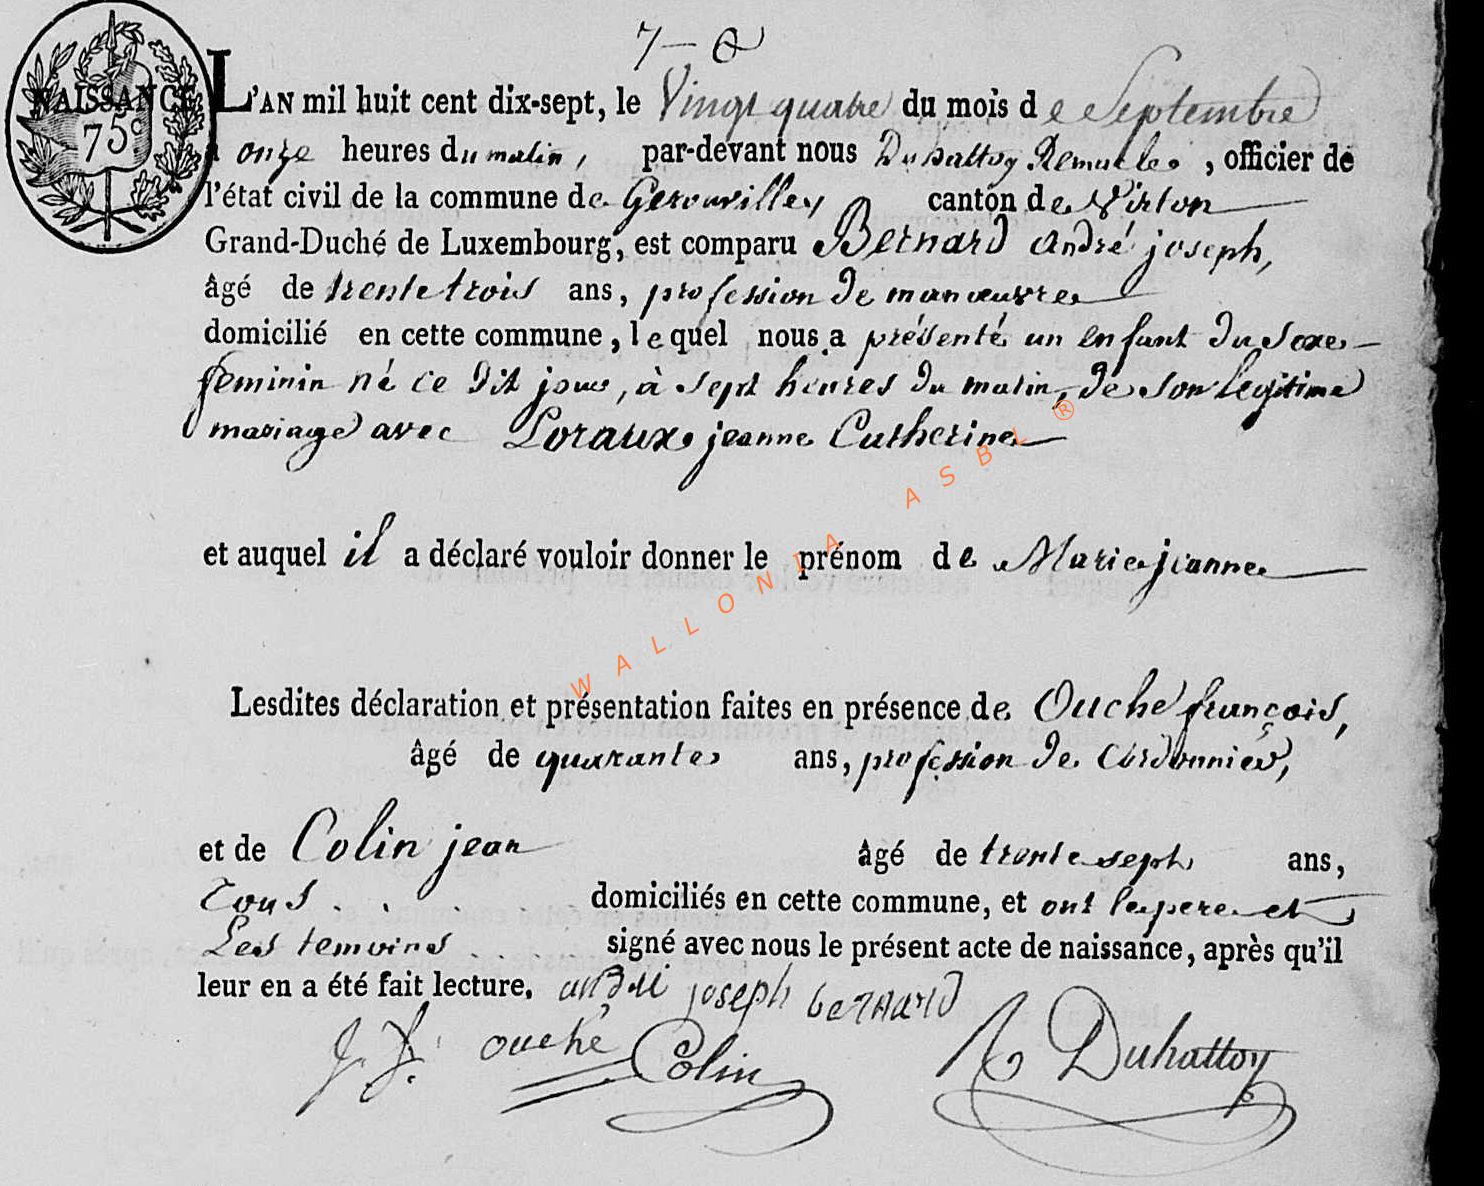 7 – 8
NAISSANCE
75c
L'AN mil huit cent dix-sept, le Vingt quatre du mois de Septembre
à onze heures du matin, par-devant nous Duhattoy Remacle, officier de
l'état civil de la commune de Gerouville, canton de Virton
Grand-Duché de Luxembourg, est comparu Bernard andré joseph,
âgé de trente trois ans, profession de manœuvre
domicilié en cette commune, lequel nous a présenté un enfant du Sexe
feminin né ce dit jour, à sept heures du matin, de son legitime
mariage avec Loraux jeanne Catherine
et auquel il a déclaré vouloir donner le prénom de Marie jeanne
Lesdites déclaration et présentation faites en présence de Ouché françois,
âgé de quarante ans, profession de Cordonnier,
et de Colin jean âgé de trente sept ans,
tous . . . . . domiciliés en cette commune, et ont le pere et
Les temoins . . . . signé avec nous le présent acte de naissance, après qu'il
leur en a été fait lecture. andré joseph bernard
ouché Colin R Duhattoy
WALLONIA ASBL ®